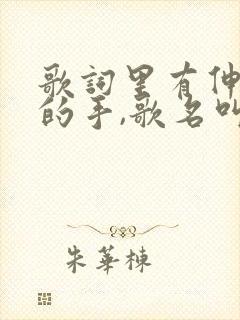 歌詞里有伸
的手,歌名叫
朱華棟